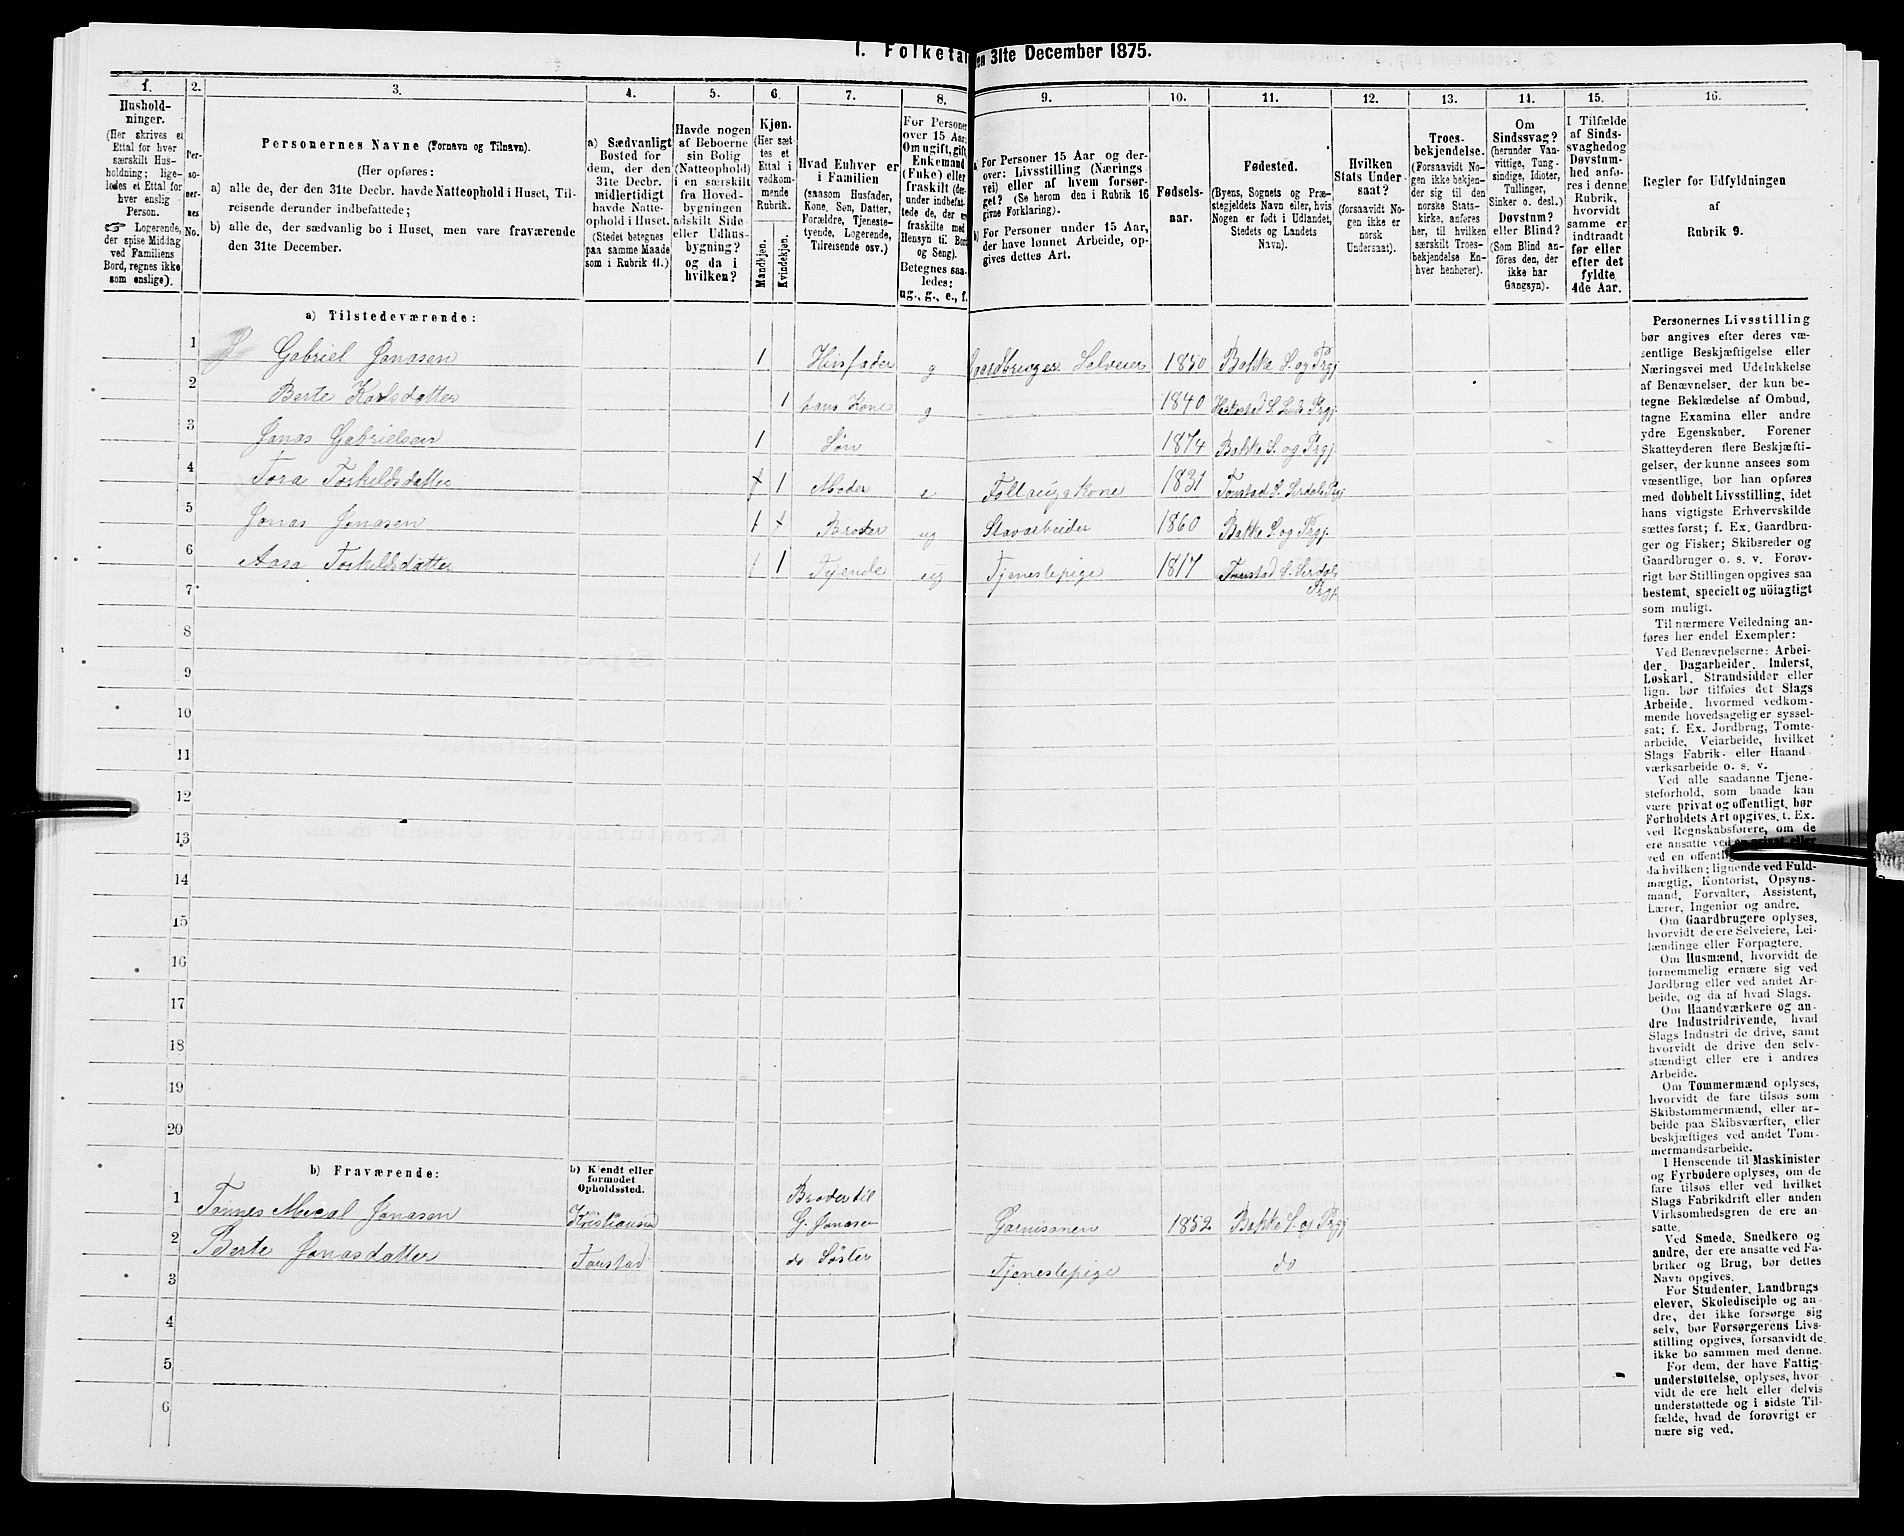 1. Folketal
en 31te December 1875.
1.
Hushold-
ninger.
(Her skrives et
Ettal for hver
særskilt Hus-
holdning; lige-
ledes et Ettal for
hver enslig
Person.
☞ Logerende,
der spise Middag
ved Familiens
Bord, regnes ikke
som enslige).
2.
Per-
so-
ner-
nes
No.
3.
Personernes Navne (Fornavn og Tilnavn).
(Her opføres:
a) alle de, der den 31te Decbr. havde Natteophold i Huset, Til-
reisende derunder indbefattede;
b) alle de, der sædvanlig bo i Huset, men vare fraværende
den 31te December.
4.
a) Sædvanligt
Bosted for
dem, der den
31te Decbr.
midlertidigt
havde Natte-
ophold i Huset.
(Stedet betegnes
paa samme Maade
som i Rubrik 11.)
5.
Havde nogen
af Beboerne
sin Bolig
(Natteophold)
i en særskilt
fra Hoved-
bygningen
adskilt Side-
eller Udhus-
bygning?
og da i
hvilken?
6.
Kjøn.
(Her sæt-
tes et
Ettal i
vedkom-
mende
Rubrik.
Mandkjøn.
Kvindekjøn.
7.
Hvad Enhver er
i Familien
(saasom Husfader,
Kone, Søn, Datter,
Forældre, Tjeneste-
tyende, Logerende,
Tilreisende osv.)
8.
For Personer
over 15 Aar:
Om ugift, gift,
Enkemand
(Enke) eller
fraskilt (der-
under indbefat-
tede de, der er
fraskilte med
Hensyn til Bord
og Seng).
Betegnes saa-
ledes:
ug., g., e., f.
9.
a) For Personer 15 Aar og der-
over: Livsstilling (Nærings
vei) eller af hvem forsør-
get? (Se herom den i Rubrik 16
givne Forklaring).
b) For Personer under 15 Aar,
der have lønnet Arbeide, op-
gives dettes Art.
10.
Fødsels-
aar.
11.
Fødested.
(Byens, Sognets og Præ-
stegjeldets Navn eller, hvis
Nogen er født i Udlandet,
Stedets og Landets
Navn).
12.
Hvilken
Stats Under-
saat?
(forsaavidt No-
gen ikke er
norsk
Undersaat).
13.
Troes-
bekjendelse.
(Forsaavidt No-
gen ikke bekjen-
der sig til den
norske Stats-
kirke, anføres
her, til hvilken
særskilt Troes-
bekjendelse En-
hver henhører).
14.
Om
Sindssvag?
(herunder Van-
vittige, Tung-
sindige, Idioter,
Tullinger,
Sinker o. desl.)
Døvstum?
eller Blind?
(Som Blind an-
føres den, der
ikke har
Gangsyn).
15.
I Tilfælde
af Sinds-
svaghed og
Døvstum-
hed anfø-
res i denne
Rubrik,
hvorvidt
samme er
indtraadt
før eller
efter det
fyldte
4de Aar.
16.
Regler før Udfyldningen
af
Rubrik 9.
a) Tilstedeværende:
1 Gabriel Jonasen 1 Husfader g Gaardbruger Selveier 1850 Bakke S. og Prgj
2 Berte Karlsdatter 1 hans Kone g 1840 Heskestad S. Lunds Prgj.
3 Jonas Gabrielsen 1 Søn 1874 Bakke S. og Prgj.
4 Tora Torkeldsdatter 1 Moder e Føllaugskone 1831 Tonstad S. Sirdals Prgj
5 Jonas Jonasen 1 Broder ug Stavarbeider 1860 Bakke S og Prgj.
6 Aasa Torkeldsdatter 1 Tjende ug Tjenestepige 1817 Tonstad S. Sirdals
Prgj.
7
8
9
10
11
12
13
14
15
16
17
18
19
20
b) Fraværende:
b) Kjendt eller
formodet
Opholdssted.
1 Tønnes Mecal Jonasen Kristiansand Broder til
G. Jonasen Garnisonen 1852 Bakke S. og Prgj
2 Berte Jonasdatter Tonstad do Søster Tjenestepige do
3
4
5
6
Personernes Livsstilling
bør angives efter deres væ-
sentlige Beskjæftigelse eller
Næringsvei med Udelukkelse
af Benævnelser, der kun be-
tegne Beklædelse af Ombud,
tagne Examina eller andre
ydre Egenskaber. Forener
Skatteyderen flere Beskjæfti-
gelser, der kunne ansees som
væsentlige, bør han opføres
med dobbelt Livsstilling, idet
hans vigtigste Erhvervskilde
sættes først; f. Ex. Gaardbru-
ger og Fisker; Skibsreder og
Gaardbruger o. s. v. Forøv-
rigt bør Stillingen opgives saa
bestemt, specielt og nøiagtigt
som muligt.
Til nærmere Veiledning an-
føres her endel Exempler:
Ved Benævnelserne: Arbei-
der, Dagarbeider, Inderst,
Løskarl, Strandsidder eller
lign. bør tilføies det Slags
Arbeide, hvormed vedkom-
mende hovedsagelig er syssel-
sat; f. Ex. Jordbrug, Tomte-
arbeide, Veiarbeide, hvilket
Slags Fabrik- eller Haand-
værksarbeide o. s. v.
Ved alle saadanne Tjene-
steforhold, som baade kan
være privat og offentligt, bør
Forholdets Art opgives, f. Ex.
ved Regnskabsførere, om de
ere ansatte ved en privat eller
ved en offentlig
da hvilken; lignende ved Fuld-
mægtig, Kontorist, Opsyns-
mand, Forvalter, Assistent,
Lærer, Ingeniør og andre.
Om Gaardbrugere oplyses,
hvorvidt de ere Selveiere, Lei-
lændinge eller Forpagtere.
Om Husmænd, hvorvidt de
fornemmelig ernære sig ved
Jordbrug eller ved andet Ar-
beide, og da af hvad Slags.
Om Haandværkere og an-
dre Industridrivende, hvad
Slags Industri de drive, samt
hvorvidt de drive den selv-
stændigt eller ere i andres
Arbeide.
Om Tømmermænd oplyses,
hvorvidt de fare tilsøs som
Skibstømmermænd, eller ar-
beide paa Skibsværfter, eller
beskjæftiges ved andet Tøm-
mermandsarbeide.
I Henseende til Maskinister
og Fyrbødere oplyses, om de
fare tilsøs eller ved hvilket
Slags Fabrikdrift eller anden
Virksomhedsgren de ere an-
satte.
Ved Smede, Snedkere og
andre, der ere ansatte ved Fa-
briker og Brug, bør dettes
Navn opgives.
For Studenter, Landbrugs-
elever, Skoledisciple og an-
dre, der ikke forsørge sig
selv, bør Forsørgerens Livs-
stilling opgives, forsaavidt de
ikke bo sammen med denne.
For dem, der have Fattig-
understøttelse, oplyses, hvor-
vidt de ere helt eller delvis
understøttede og i sidste Til-
fælde, hvad de forøvrigt er
nære sig ved.